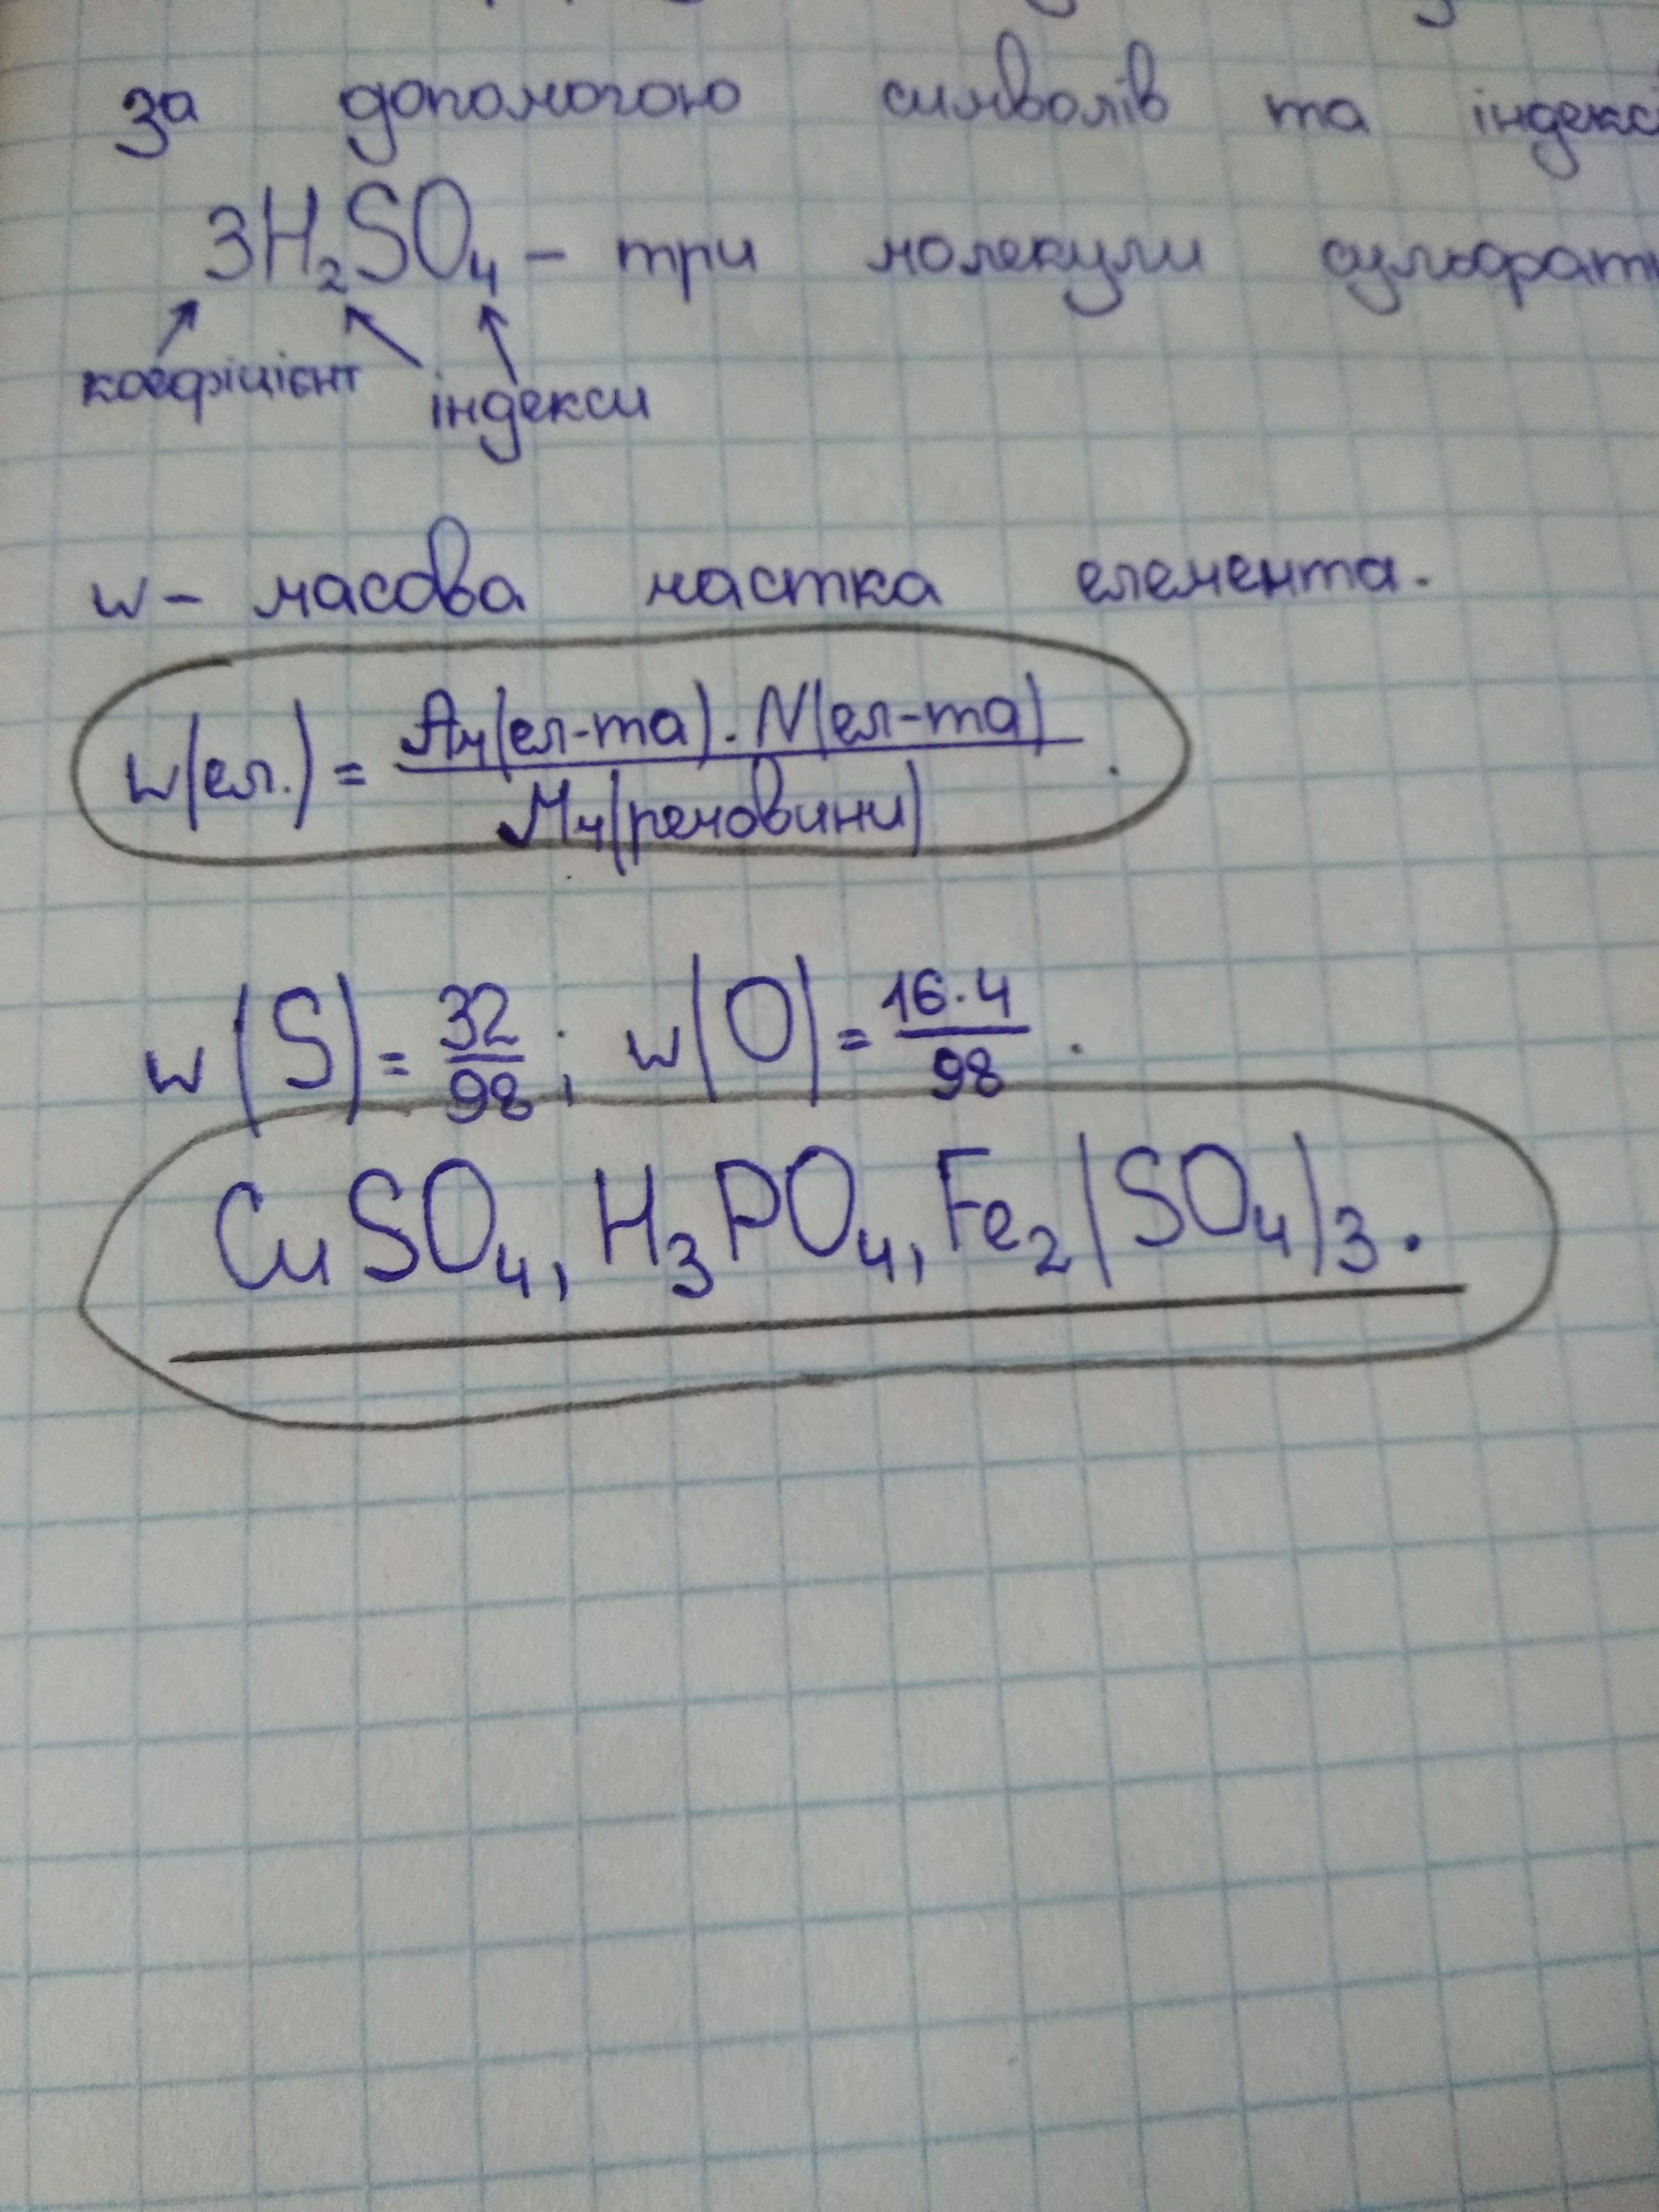 за допомогою символів та індексі
3H₂SO₄ – три молекули сульфатн
коефіцієнт індекси
w – масова частка елемента.
w(ел.) = Ar(ел-та) · N(ел-та) / Mr(речовини) .
w(S) = 32/98 ; w(O) = 16·4/98 .
CuSO₄, H₃PO₄, Fe₂(SO₄)₃.